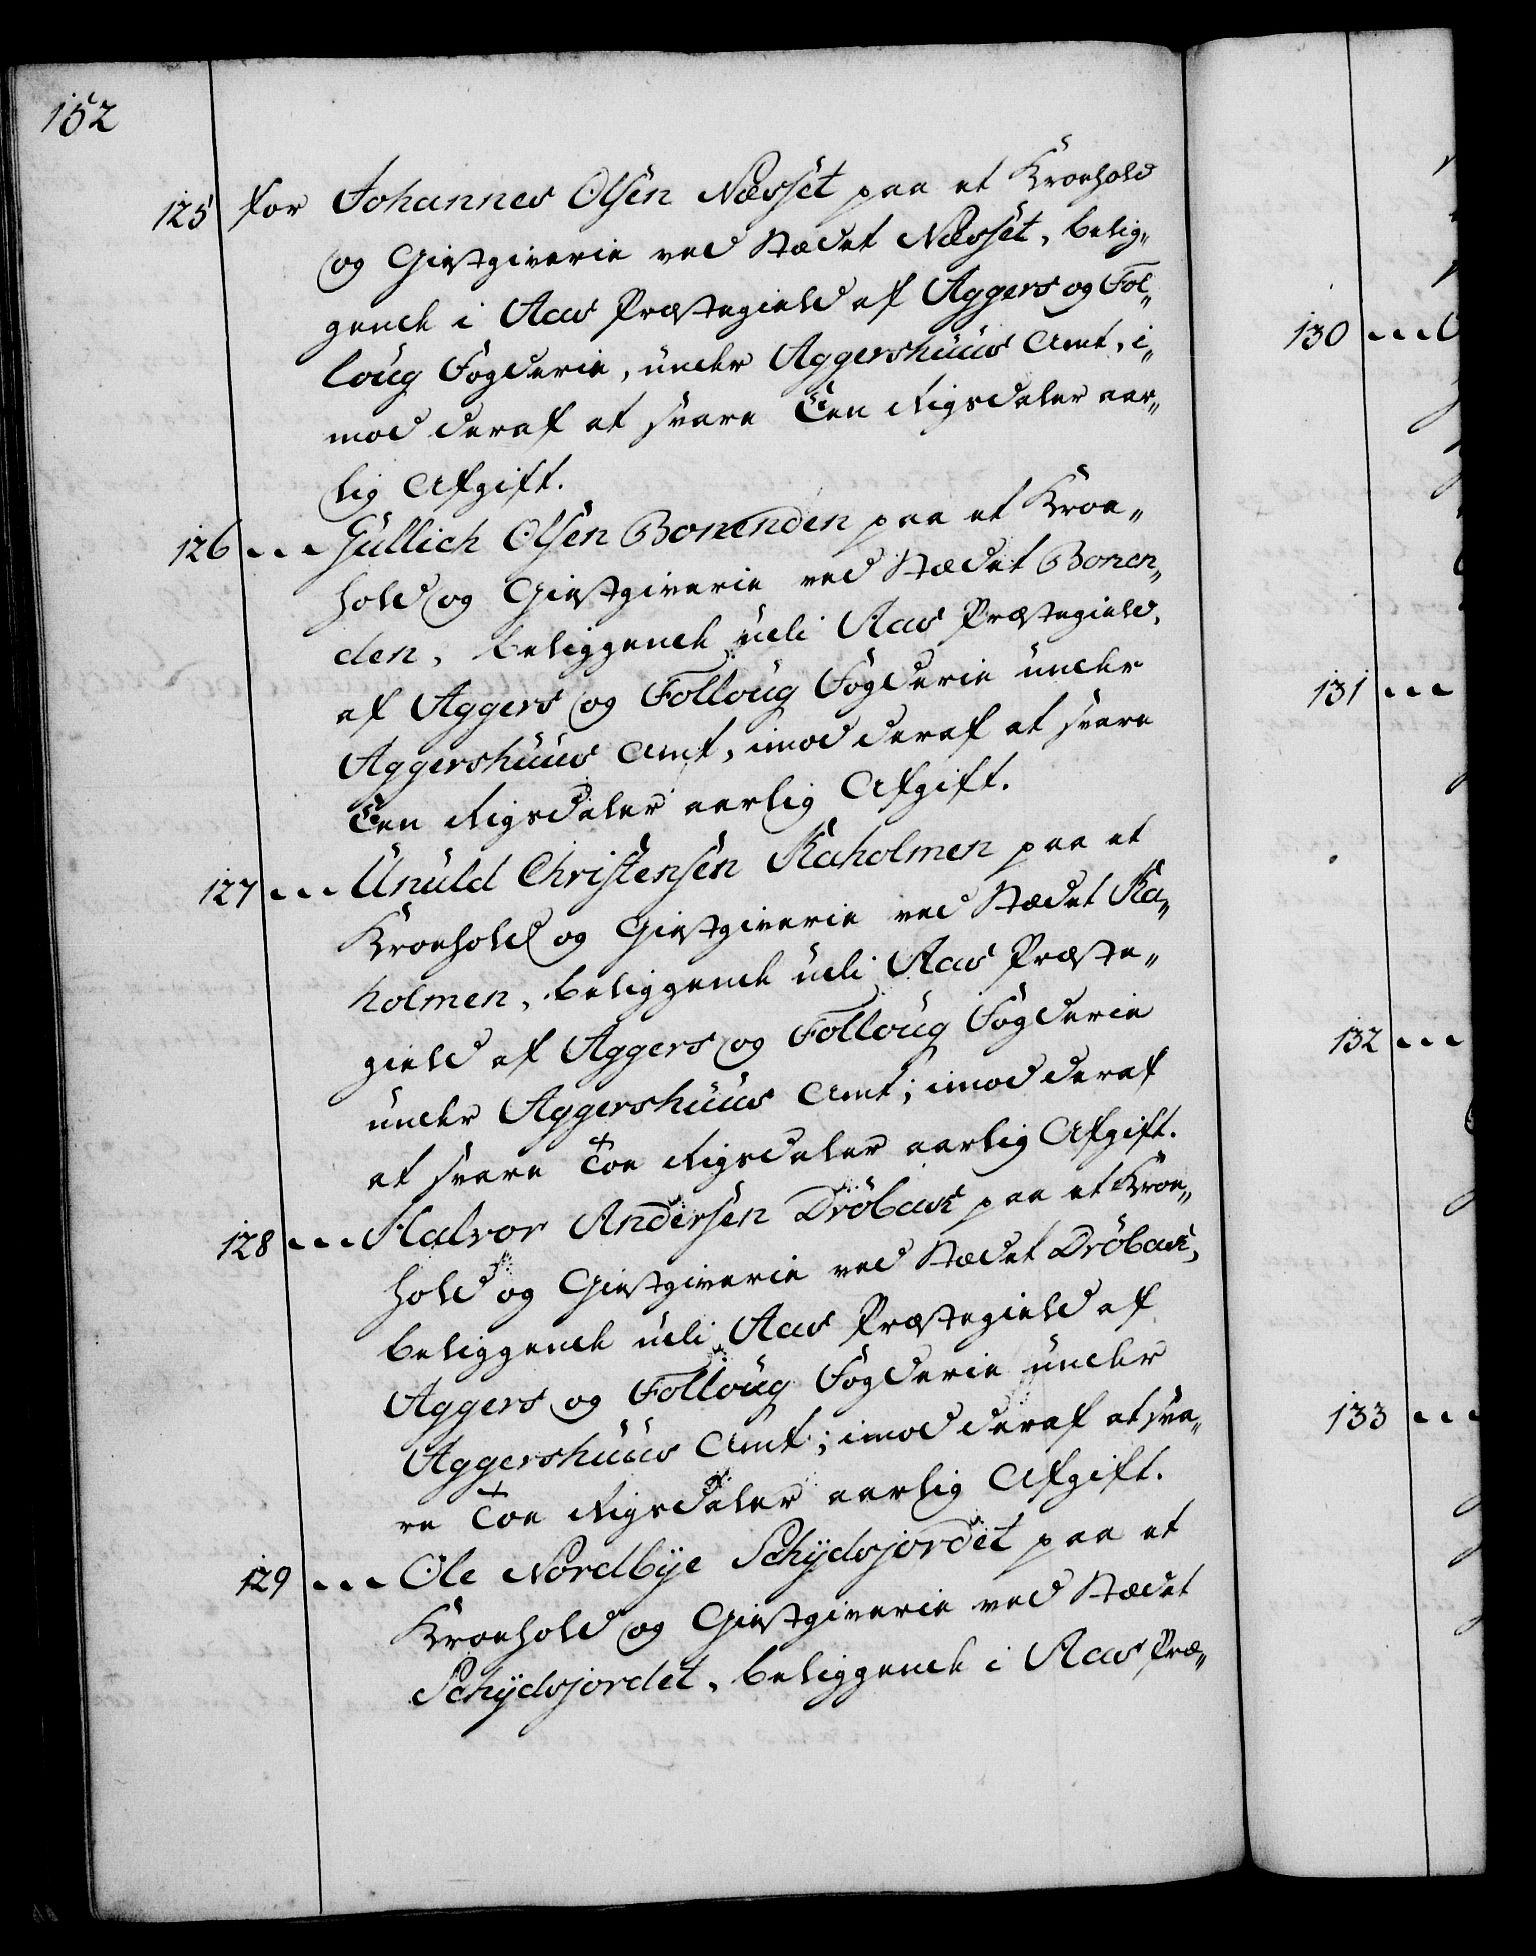 152
125 for Johannes Olsen Næsset paa et Kroehold
og Giestgiverie ved Stædet Næsset, belig„
gende i Aas Præstegield af Aggers og Fol„
loug Fogderie, under Aggershuus Amt, i„
mod deraf at svare Een Rigsdaler aar„
lig Afgift.
126 ... Gullich Olsen Bonenden paa et Kroe„
hold og Giestgiverie ved Stædet Bonen„
den, beliggende udi Aas Præstegield,
af Aggers og Folloug Fogderie under
Aggershuus Amt, imod deraf at svare
Een Rigsdaler aarlig Afgift.
127 ... Unuld Christensen Kaholmen paa et
Kroehold og Giestgiverie ved Stædet Ka„
holmen, beliggende udi Aas Præste„
gield af Aggers og Folloug Fogderie
under Aggershuus Amt; imod deraf
at svare Toe Rigsdaler aarlig Afgift.
128 ... Halvor Andersen Dröbak paa et Kroe„
hold og Giestgiverie ved Stædet Dröbak,
beliggende udi Aas Præstegield af
Aggers og Folloug Fogderie under
Aggershuus Amt; imod deraf at sva„
re Toe Rigsdaler aarlig Afgift.
129 ... Ole Nordbÿe Schÿdsjordet paa et
Kroehold og Giestgiverie ved Stædet
Schÿdsjordet, beliggende i Aas Præ„
130 ...
131 ...
132 ...
133 ...